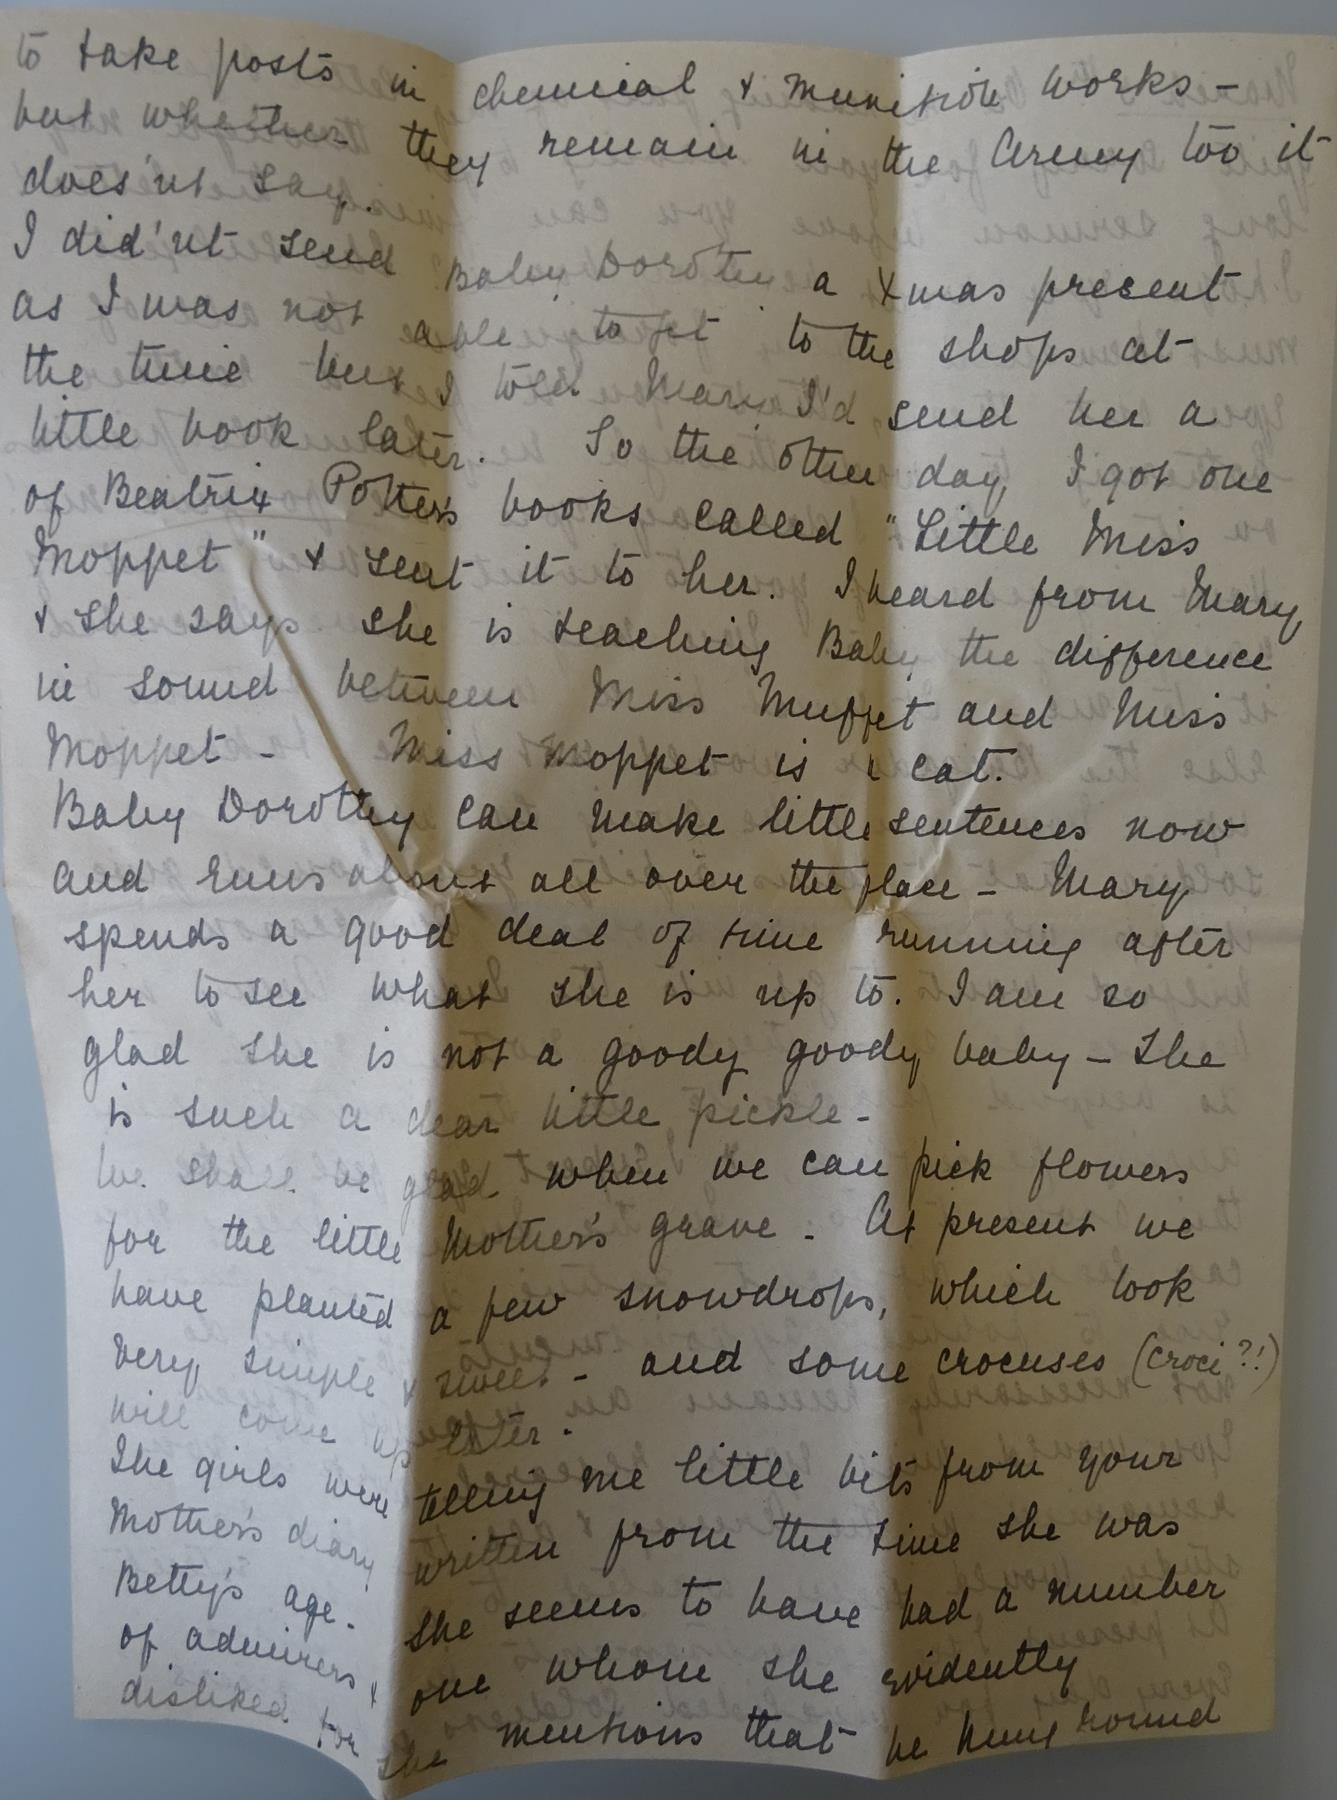 to take posts in chemical & munition works -
but whether they remain in the Army too it
does'nt say.
I did'nt send Baby Dorothy a Xmas present
as I was not able to get to the shops at
the time but I told Mary I'd send her a
little book later. So the other day I got one
of Beatrix Potter's books called "Little Miss
Moppet" & sent it to her. I heard from Mary
& she says she is teaching Baby the difference
in sound between Miss Muffet and Miss
Moppet - Miss Moppet is a cat.
Baby Dorothy can make little sentences now
and runs about all over the place - Mary
spends a good deal of time running after
her to see what she is up to. I am so
glad she is not a goody goody baby - She
is such a dear little pickle -
We shall be glad when we can pick flowers
for the little Mother's grave. At present we
have planted a few snowdrops, which look
very simple & sweet - and some crocuses (croci?!)
will come up later.
The girls were telling me little bits from your
Mother's diary written from the time she was
Betty's age. She seems to have had a number
of admirers & one whom she evidently
disliked for she mentions that he hung round